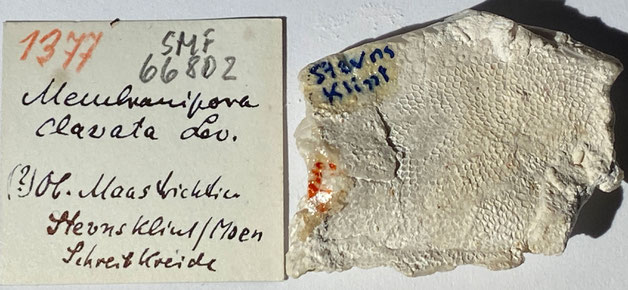 1377
SMF
66802
Membranipora
clavata Lev.
(?) Ob. Maastrichtien
Stevnsklint/Moen
Schreibkreide
Stevns
Klint